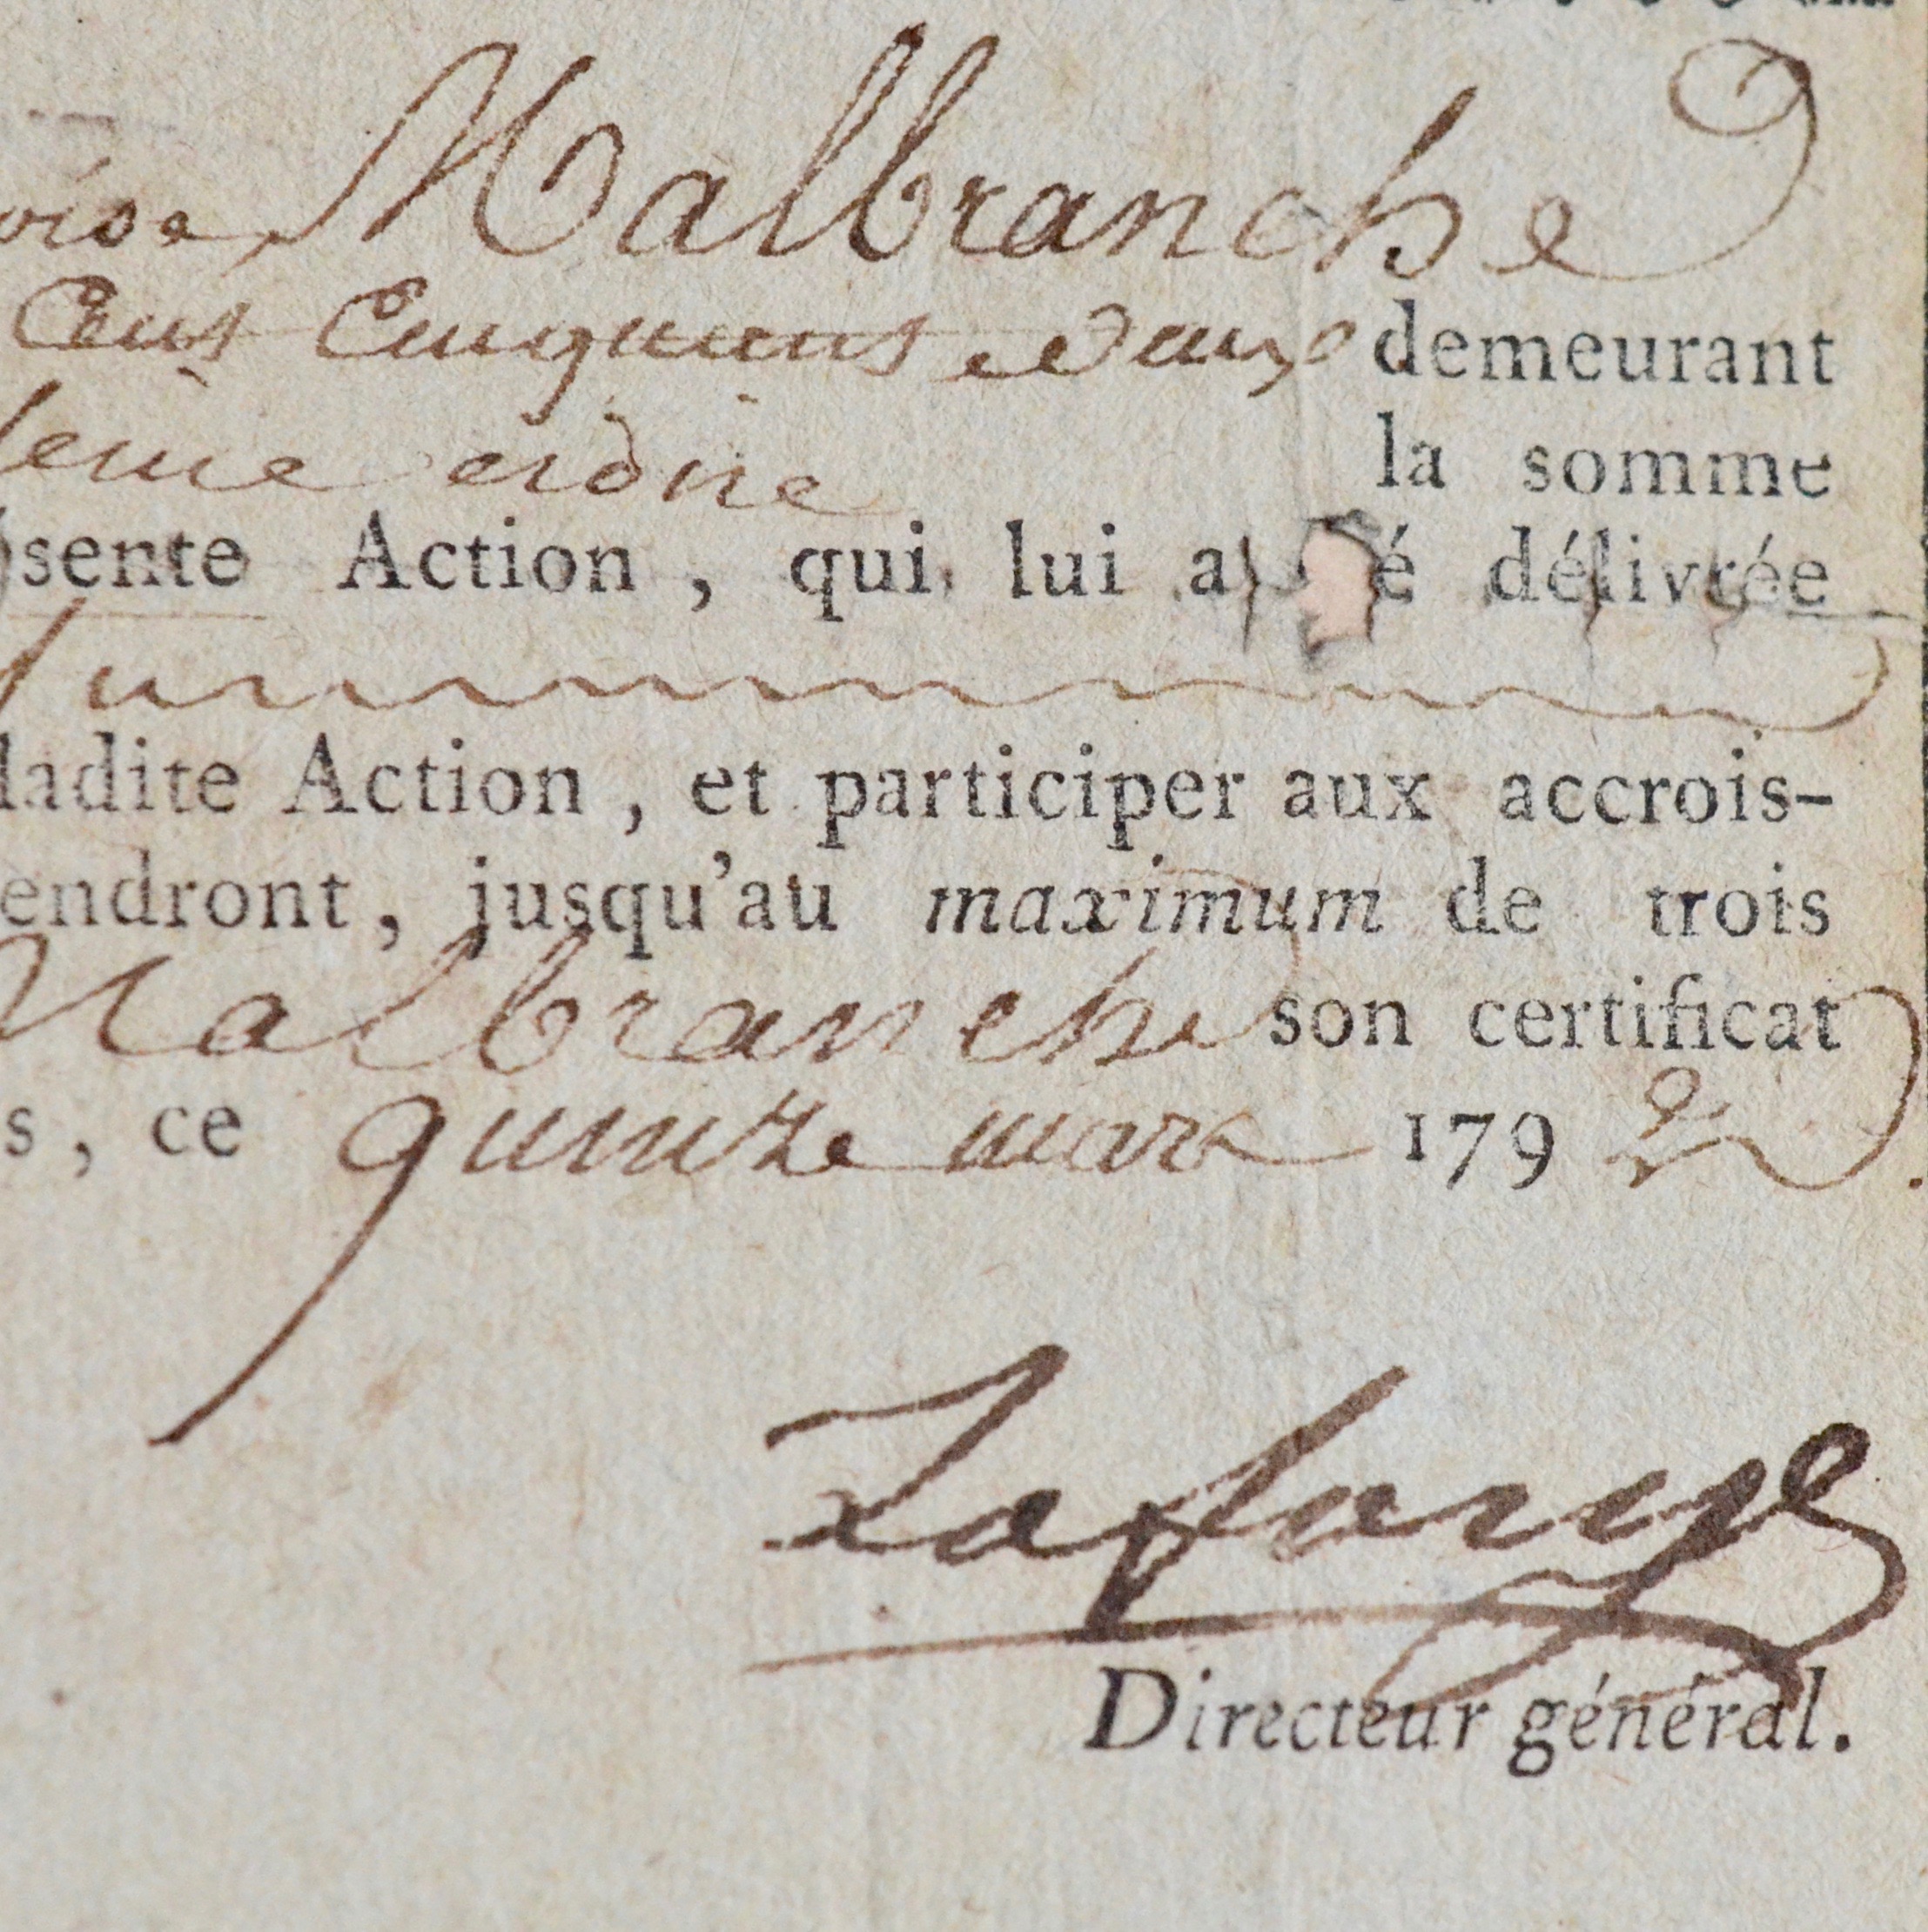 Malbranche
Cent Cinquante deux demeurant
la somme
sente Action, qui lui a é délivrée
ladite Action, et participer aux accrois-
endront, jusqu'au maximum de trois
Malbranche son certificat
s, ce quinze mars 1792
Lafarge
Directeur général.